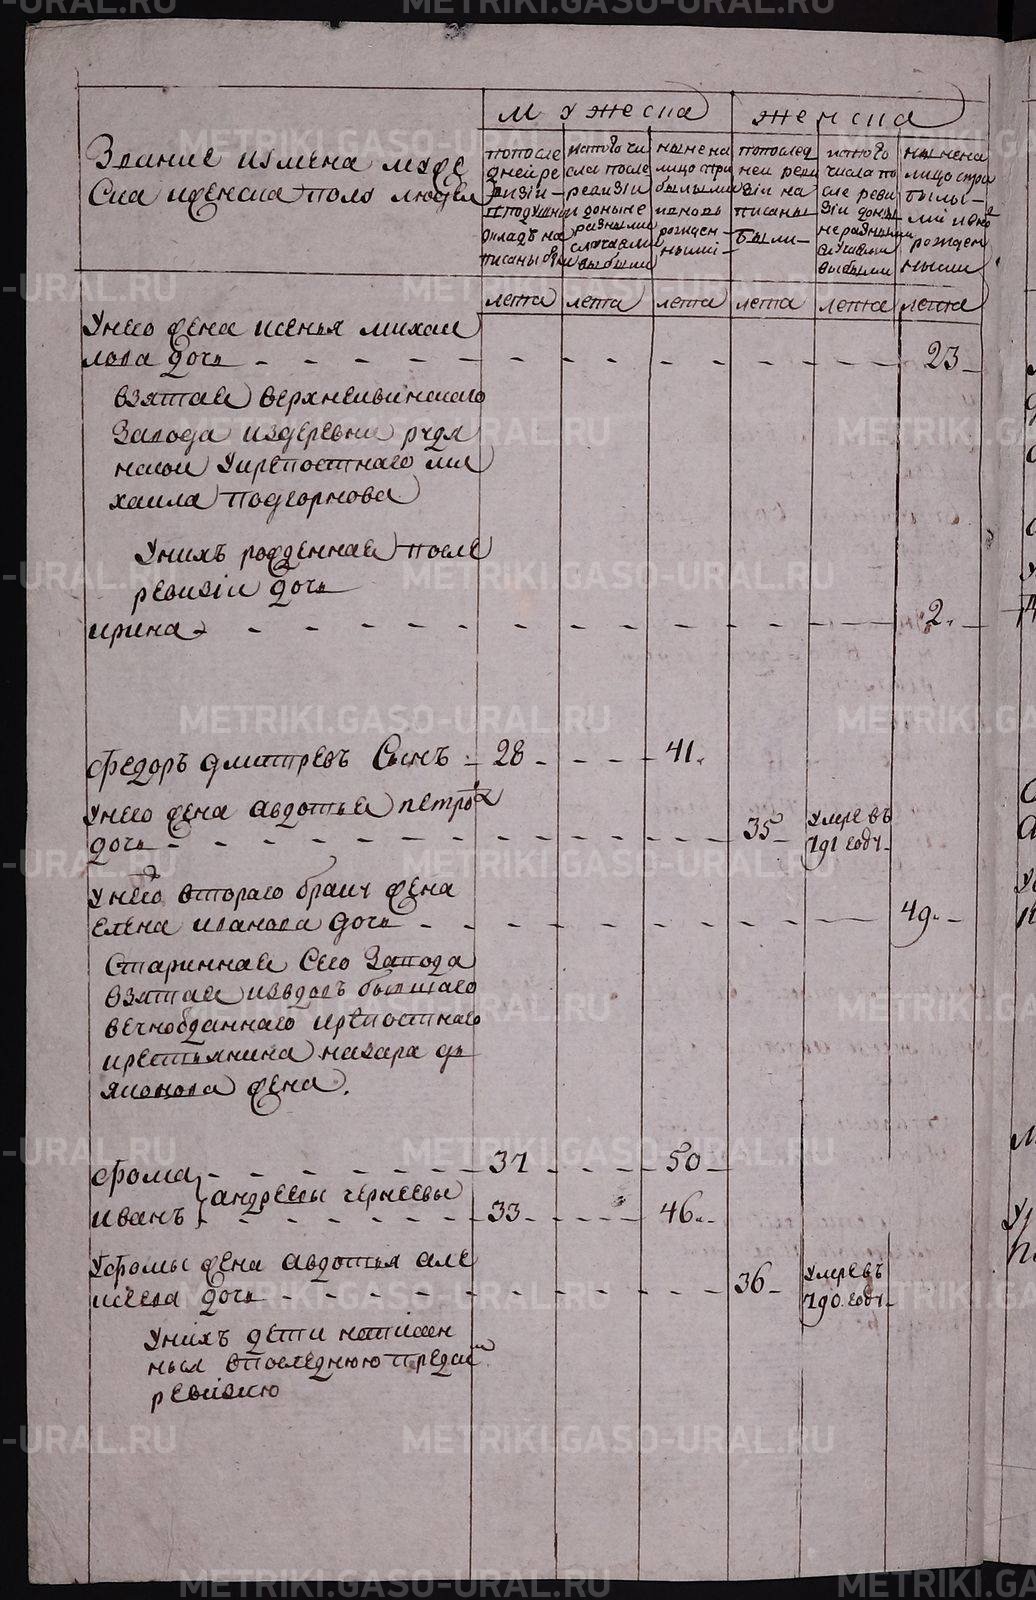 METRIKI.GASO-URAL.RU
мужеска
женска
Звание и имена муже
ска и женска полу людей
по после
дней ре
визiи
в подушной
окладъ на
писаны были
ис того чи
сла после
ревизiи
до ныне
разными
случаями
выбыли
ныне на
лицо при
былыми
и вновь
рожден
ными
по послед
ней реви
зiи на
писаны
были
ис того
числа по
сле реви
зiи до ны
не разными
случаями
выбыли
ныне на
лицо при
былы
ми и вно
рожден
ными
лета лета лета лета лета лета
У него жена Ксенья Михаи
лова дочь 23
взятая Верхнейвинскаго
завода из деревни рудя
нской у крепостнаго Ми
хаила Подгорнова
У нихъ рожденная после
ревизiи дочь
Ирина 2
Федоръ Дмитревъ сынъ 28 41
У него жена Авдотья Петрова
дочь 35 умре въ
791 году
У него втораго браку жена
Елена Иванова дочь 49
старинная сего завода
взятая из вдовъ бывшаго
вечноотданнаго крепостнаго
крестьянина Назара Дь
яконова жена.
Фома 37 50
Андреевы Черневы
Иванъ 33 46
У Фомы жена Авдотья Але
ксеева дочь 36 умре въ
790 году
У нихъ дети написан
ныя в последнюю пред сим
ревизию